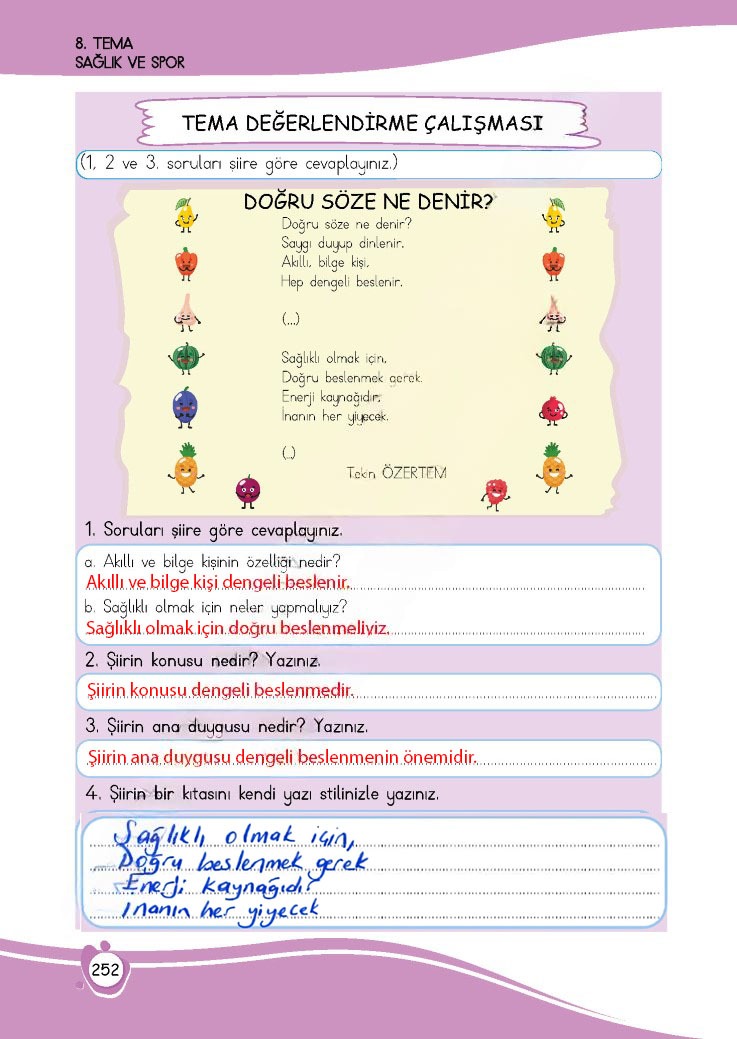 8. TEMA
SAĞLIK VE SPOR
TEMA DEĞERLENDİRME ÇALIŞMASI
(1, 2 ve 3. soruları şiire göre cevaplayınız.)
DOĞRU SÖZE NE DENİR?
Doğru söze ne denir?
Saygı duyup dinlenir.
Akıllı, bilge kişi,
Hep dengeli beslenir.
(...)
Sağlıklı olmak için,
Doğru beslenmek gerek.
Enerji kaynağıdır,
İnanın her yiyecek.
(..)
Tekin ÖZERTEM
1. Soruları şiire göre cevaplayınız.
a. Akıllı ve bilge kişinin özelliği nedir?
Akıllı ve bilge kişi dengeli beslenir.
b. Sağlıklı olmak için neler yapmalıyız?
Sağlıklı olmak için doğru beslenmeliyiz.
2. Şiirin konusu nedir? Yazınız.
Şiirin konusu dengeli beslenmedir.
3. Şiirin ana duygusu nedir? Yazınız.
Şiirin ana duygusu dengeli beslenmenin önemidir.
4. Şiirin bir kıtasını kendi yazı stilinizle yazınız.
Sağlıklı olmak için,
Doğru beslenmek gerek
Enerji kaynağıdır
İnanın her yiyecek
252